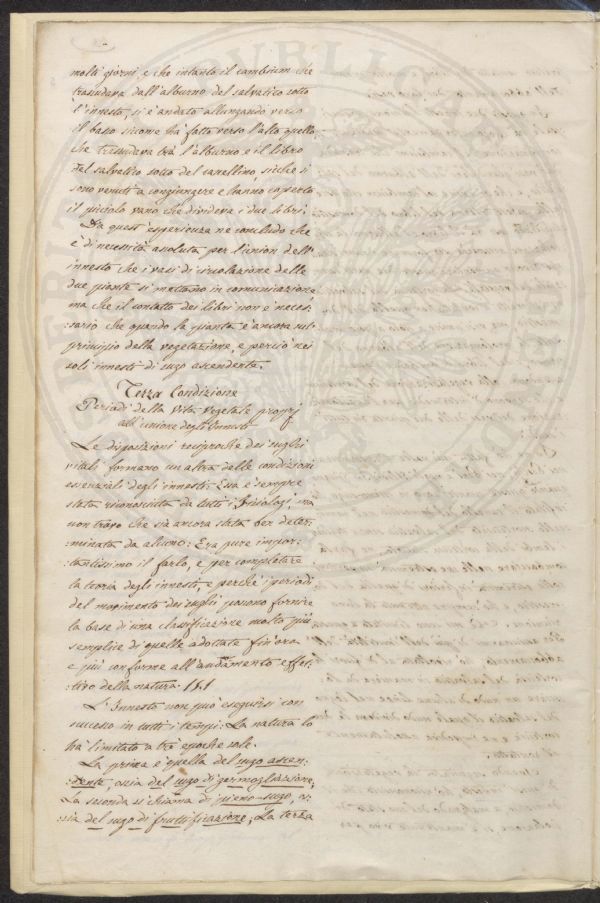 molti giorni, e che intanto il cambium che
trasudava dall'alburno del salvatico sotto
l'innesto, si è andato allungando verso
il basso siccome ha fatto verso l'alto quello
che trasudava trà l'alburno e il libro
del salvatico sotto del cavellino sicchè si
sono venuti a congiungere e hanno coperto
il picciolo vano che divideva i due libri.
Da quest'esperienza ne concludo che
è di necessità assoluta per l'union dell'
innesto che i vasi di circolazione delle
due piante si mettano in comunicazione
ma che il contatto dei libri non è neces:
:sario che quando la pianta è ancora sul
principio della vegetazione, e perciò nei
soli innesti di sugo ascendente.
Terza Condizione
Periodi della Vita vegetale proprj
all'unione degli Innesti
Le disposizioni reciproche dei sughi
vitali formano un'altra delle condizioni
essenziali degli innesti: Essa è sempre
stata riconosciuta da tutti i Fisiologi, ma
non trovo che sia ancora stata ben deter:
:minata da alcuno: Era pure impor:
:tantissimo il farlo, e per completare
la teoria degli innesti, e perchè i periodi
del movimento dei sughi possono fornire
la base di una classificazione molto più
semplice di quelle adottate fin'ora
e più conforme all'andamento effet:
:tivo della natura.
L'Innesto non può eseguirsi con
successo in tutti i tempi: La natura lo
ha limitato a trè epoche sole.
La prima è quella del sugo ascen:
:dente, ossia del sugo di germogliazione;
La seconda si chiama di pieno-sugo, os:
:sia del sugo di fruttificazione; La terza